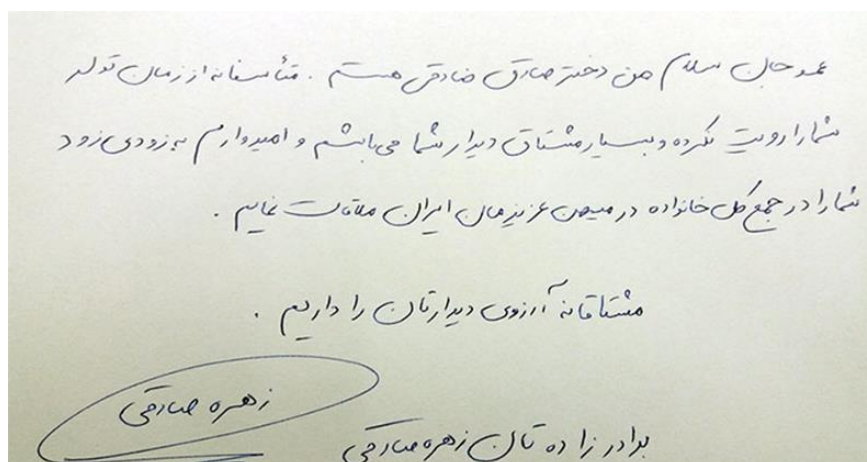 عمو جان سلام من دختر صادق صادقی هستم . متأسفانه از زمان تولد
شما را رویت نکرده و بسیار مشتاق دیدار شما می‌باشم و امیدوارم به زودی زود
شما را در جمع کل خانواده در میهن عزیزمان ایران ملاقات نمایم .
مشتاقانه آرزوی دیدارتان را داریم .
زهره صادقی
برادرزاده تان زهره صادقی